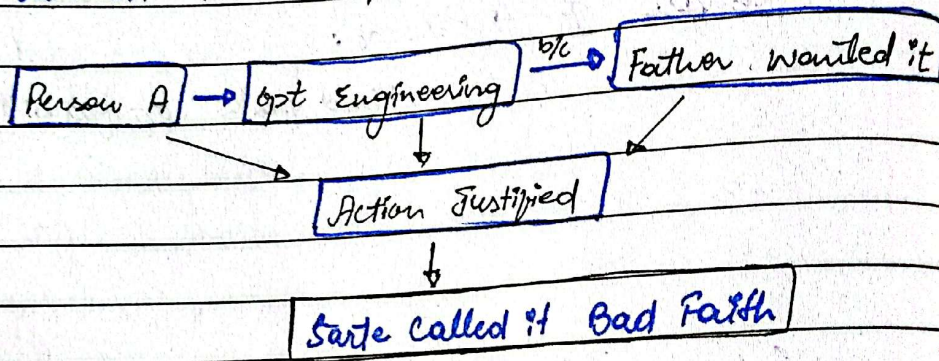 b/c
Person A opt Engineering Father wanted it
Action Justified
Sarte called it Bad Faith